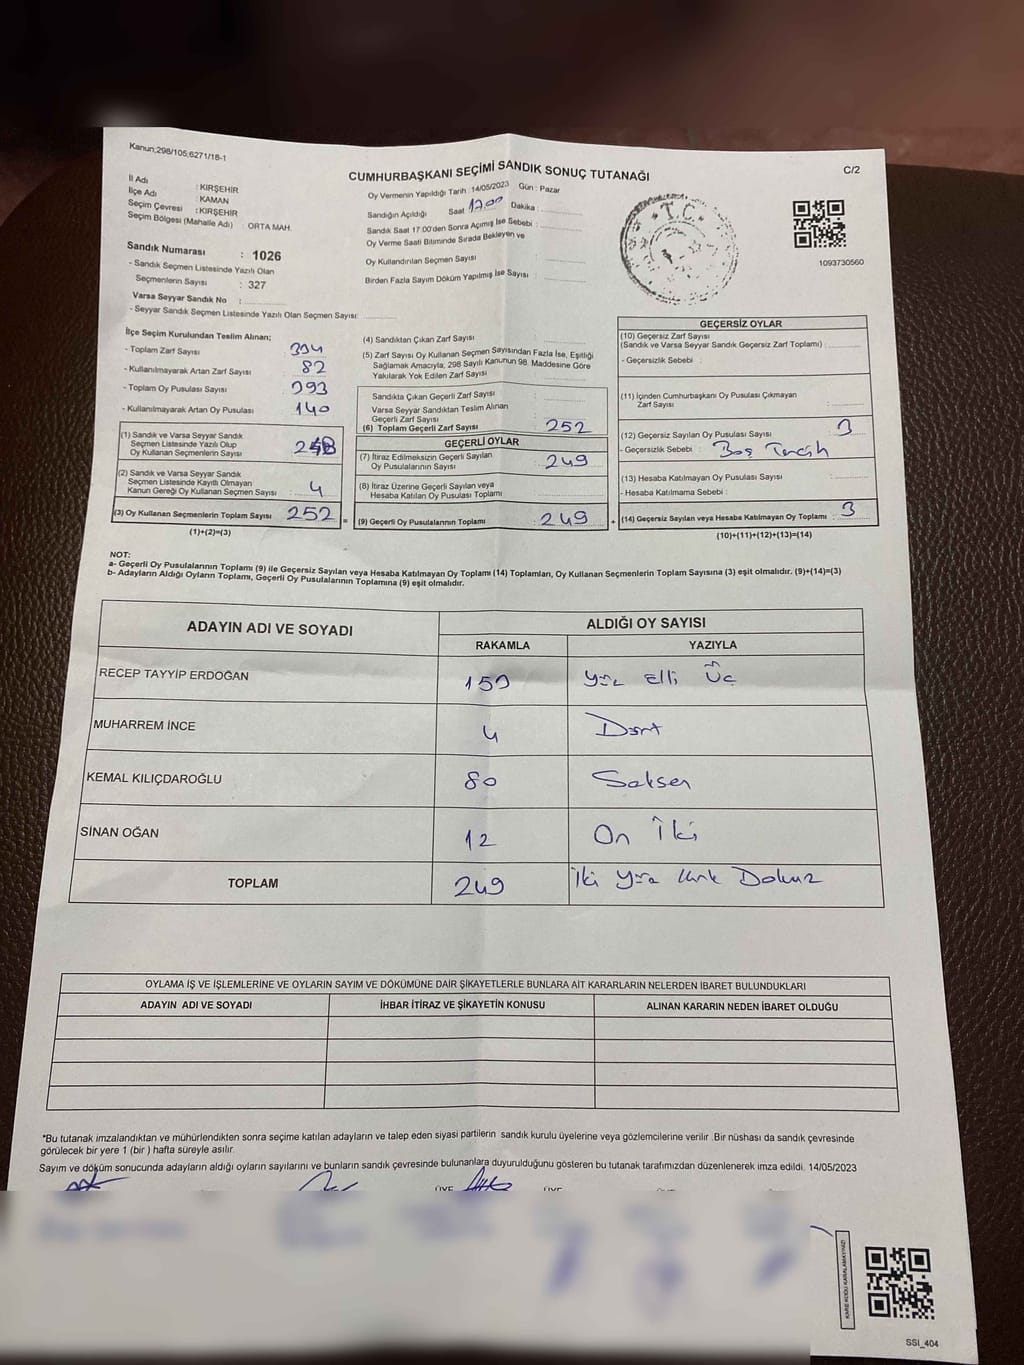 Kanun;298/105;6271/18-1
CUMHURBAŞKANI SEÇİMİ SANDIK SONUÇ TUTANAĞI
C/2
İl Adı : KIRŞEHİR
İlçe Adı : KAMAN
Seçim Çevresi : KIRŞEHİR
Seçim Bölgesi (Mahalle Adı) : ORTA MAH.
Oy Vermenin Yapıldığı Tarih : 14/05/2023 Gün : Pazar
Sandığın Açıldığı Saat 17.00 Dakika :
Sandık Saat 17.00'den Sonra Açımış İse Sebebi :
Oy Verme Saati Bitiminde Sırada Bekleyen ve
Oy Kullandırılan Seçmen Sayısı
Birden Fazla Sayım Döküm Yapılmış İse Sayısı
T.C.
1093730560
Sandık Numarası : 1026
- Sandık Seçmen Listesinde Yazılı Olan
Seçmenlerin Sayısı : 327
Varsa Seyyar Sandık No :
- Seyyar Sandık Seçmen Listesinde Yazılı Olan Seçmen Sayısı:
İlçe Seçim Kurulundan Teslim Alınan;
- Toplam Zarf Sayısı 394
- Kullanılmayarak Artan Zarf Sayısı 82
- Toplam Oy Pusulası Sayısı 393
- Kullanılmayarak Artan Oy Pusulası 140
(1) Sandık ve Varsa Seyyar Sandık
Seçmen Listesinde Yazılı Olup
Oy Kullanan Seçmenlerin Sayısı 248
(2) Sandık ve Varsa Seyyar Sandık
Seçmen Listesinde Kayıtlı Olmayan
Kanun Gereği Oy Kullanan Seçmen Sayısı 4
(3) Oy Kullanan Seçmenlerin Toplam Sayısı 252 =
(1)+(2)=(3)
(4) Sandıktan Çıkan Zarf Sayısı
(5) Zarf Sayısı Oy Kullanan Seçmen Sayısından Fazla İse, Eşitliği
Sağlamak Amacıyla, 298 Sayılı Kanunun 98. Maddesine Göre
Yakılarak Yok Edilen Zarf Sayısı
Sandıkta Çıkan Geçerli Zarf Sayısı
Varsa Seyyar Sandıktan Teslim Alınan
Geçerli Zarf Sayısı
(6) Toplam Geçerli Zarf Sayısı 252
GEÇERLİ OYLAR
(7) İtiraz Edilmeksizin Geçerli Sayılan
Oy Pusulalarının Sayısı 249
(8) İtiraz Üzerine Geçerli Sayılan veya
Hesaba Katılan Oy Pusulası Toplamı
(9) Geçerli Oy Pusulalarının Toplamı : 249 +
GEÇERSİZ OYLAR
(10) Geçersiz Zarf Sayısı
(Sandık ve Varsa Seyyar Sandık Geçersiz Zarf Toplamı) :
- Geçersizlik Sebebi :
(11) İçinden Cumhurbaşkanı Oy Pusulası Çıkmayan
Zarf Sayısı
(12) Geçersiz Sayılan Oy Pusulası Sayısı : 3
- Geçersizlik Sebebi : Boş Tercih
(13) Hesaba Katılmayan Oy Pusulası Sayısı
- Hesaba Katılmama Sebebi :
(14) Geçersiz Sayılan veya Hesaba Katılmayan Oy Toplamı : 3
(10)+(11)+(12)+(13)=(14)
NOT:
a- Geçerli Oy Pusulalarının Toplamı (9) ile Geçersiz Sayılan veya Hesaba Katılmayan Oy Toplamı (14) Toplamları, Oy Kullanan Seçmenlerin Toplam Sayısına (3) eşit olmalıdır. (9)+(14)=(3)
b- Adayların Aldığı Oyların Toplamı, Geçerli Oy Pusulalarının Toplamına (9) eşit olmalıdır.
ADAYIN ADI VE SOYADI
ALDIĞI OY SAYISI
RAKAMLA YAZIYLA
RECEP TAYYİP ERDOĞAN 153 Yüz Elli Üç
MUHARREM İNCE 4 Dört
KEMAL KILIÇDAROĞLU 80 Seksen
SİNAN OĞAN 12 On İki
TOPLAM 249 İki Yüz Kırk Dokuz
OYLAMA İŞ VE İŞLEMLERİNE VE OYLARIN SAYIM VE DÖKÜMÜNE DAİR ŞİKAYETLERLE BUNLARA AİT KARARLARIN NELERDEN İBARET BULUNDUKLARI
ADAYIN ADI VE SOYADI İHBAR İTİRAZ VE ŞİKAYETİN KONUSU ALINAN KARARIN NEDEN İBARET OLDUĞU
*Bu tutanak imzalandıktan ve mühürlendikten sonra seçime katılan adayların ve talep eden siyasi partilerin sandık kurulu üyelerine veya gözlemcilerine verilir .Bir nüshası da sandık çevresinde
görülecek bir yere 1 (bir ) hafta süreyle asılır.
Sayım ve döküm sonucunda adayların aldığı oyların sayılarını ve bunların sandık çevresinde bulunanlara duyurulduğunu gösteren bu tutanak tarafımızdan düzenlenerek imza edildi. 14/05/2023
ÜYE ÜYE
KARE KODU KARALAMAYINIZ!
SSI_404